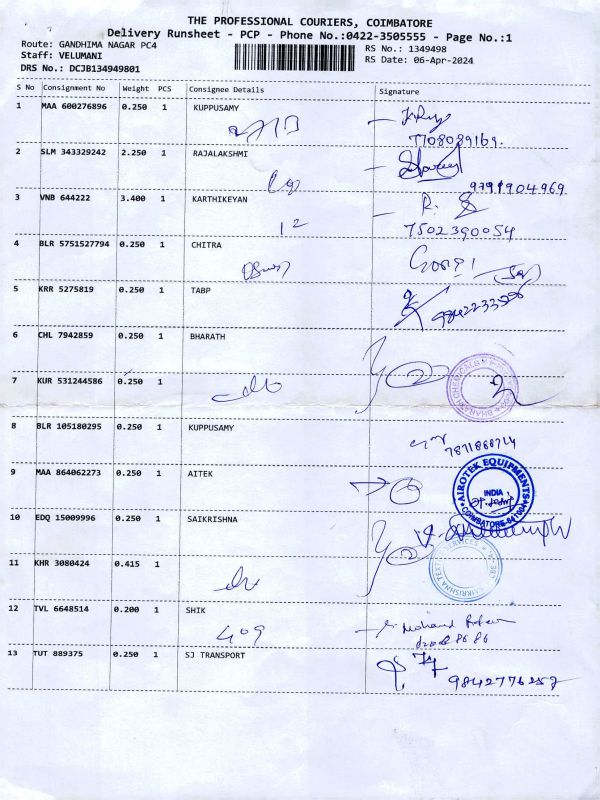 THE PROFESSIONAL COURIERS, COIMBATORE
Delivery Runsheet - PCP - Phone No.:0422-3505555 - Page No.:1
Route: GANDHIMA NAGAR PC4 RS No.: 1349498
Staff: VELUMANI RS Date: 06-Apr-2024
DRS No.: DCJB134949801
S No Consignment No Weight PCS Consignee Details Signature
1 MAA 600276896 0.250 1 KUPPUSAMY
7708089169.
2 SLM 343329242 2.250 1 RAJALAKSHMI
9791904969
3 VNB 644222 3.400 1 KARTHIKEYAN R.
12 7502390054
4 BLR 5751527794 0.250 1 CHITRA GOPI
5 KRR 5275819 0.250 1 TABP
6 CHL 7942859 0.250 1 BHARATH
7 KUR 531244586 0.250 1
8 BLR 105180295 0.250 1 KUPPUSAMY
9 MAA 864062273 0.250 1 AITEK
AIROTEK EQUIPMENTS
INDIA
COIMBATORE-641004
10 EDQ 15009996 0.250 1 SAIKRISHNA
11 KHR 3080424 0.415 1
12 TVL 6648514 0.200 1 SHIK
409
13 TUT 889375 0.250 1 SJ TRANSPORT
9842776257